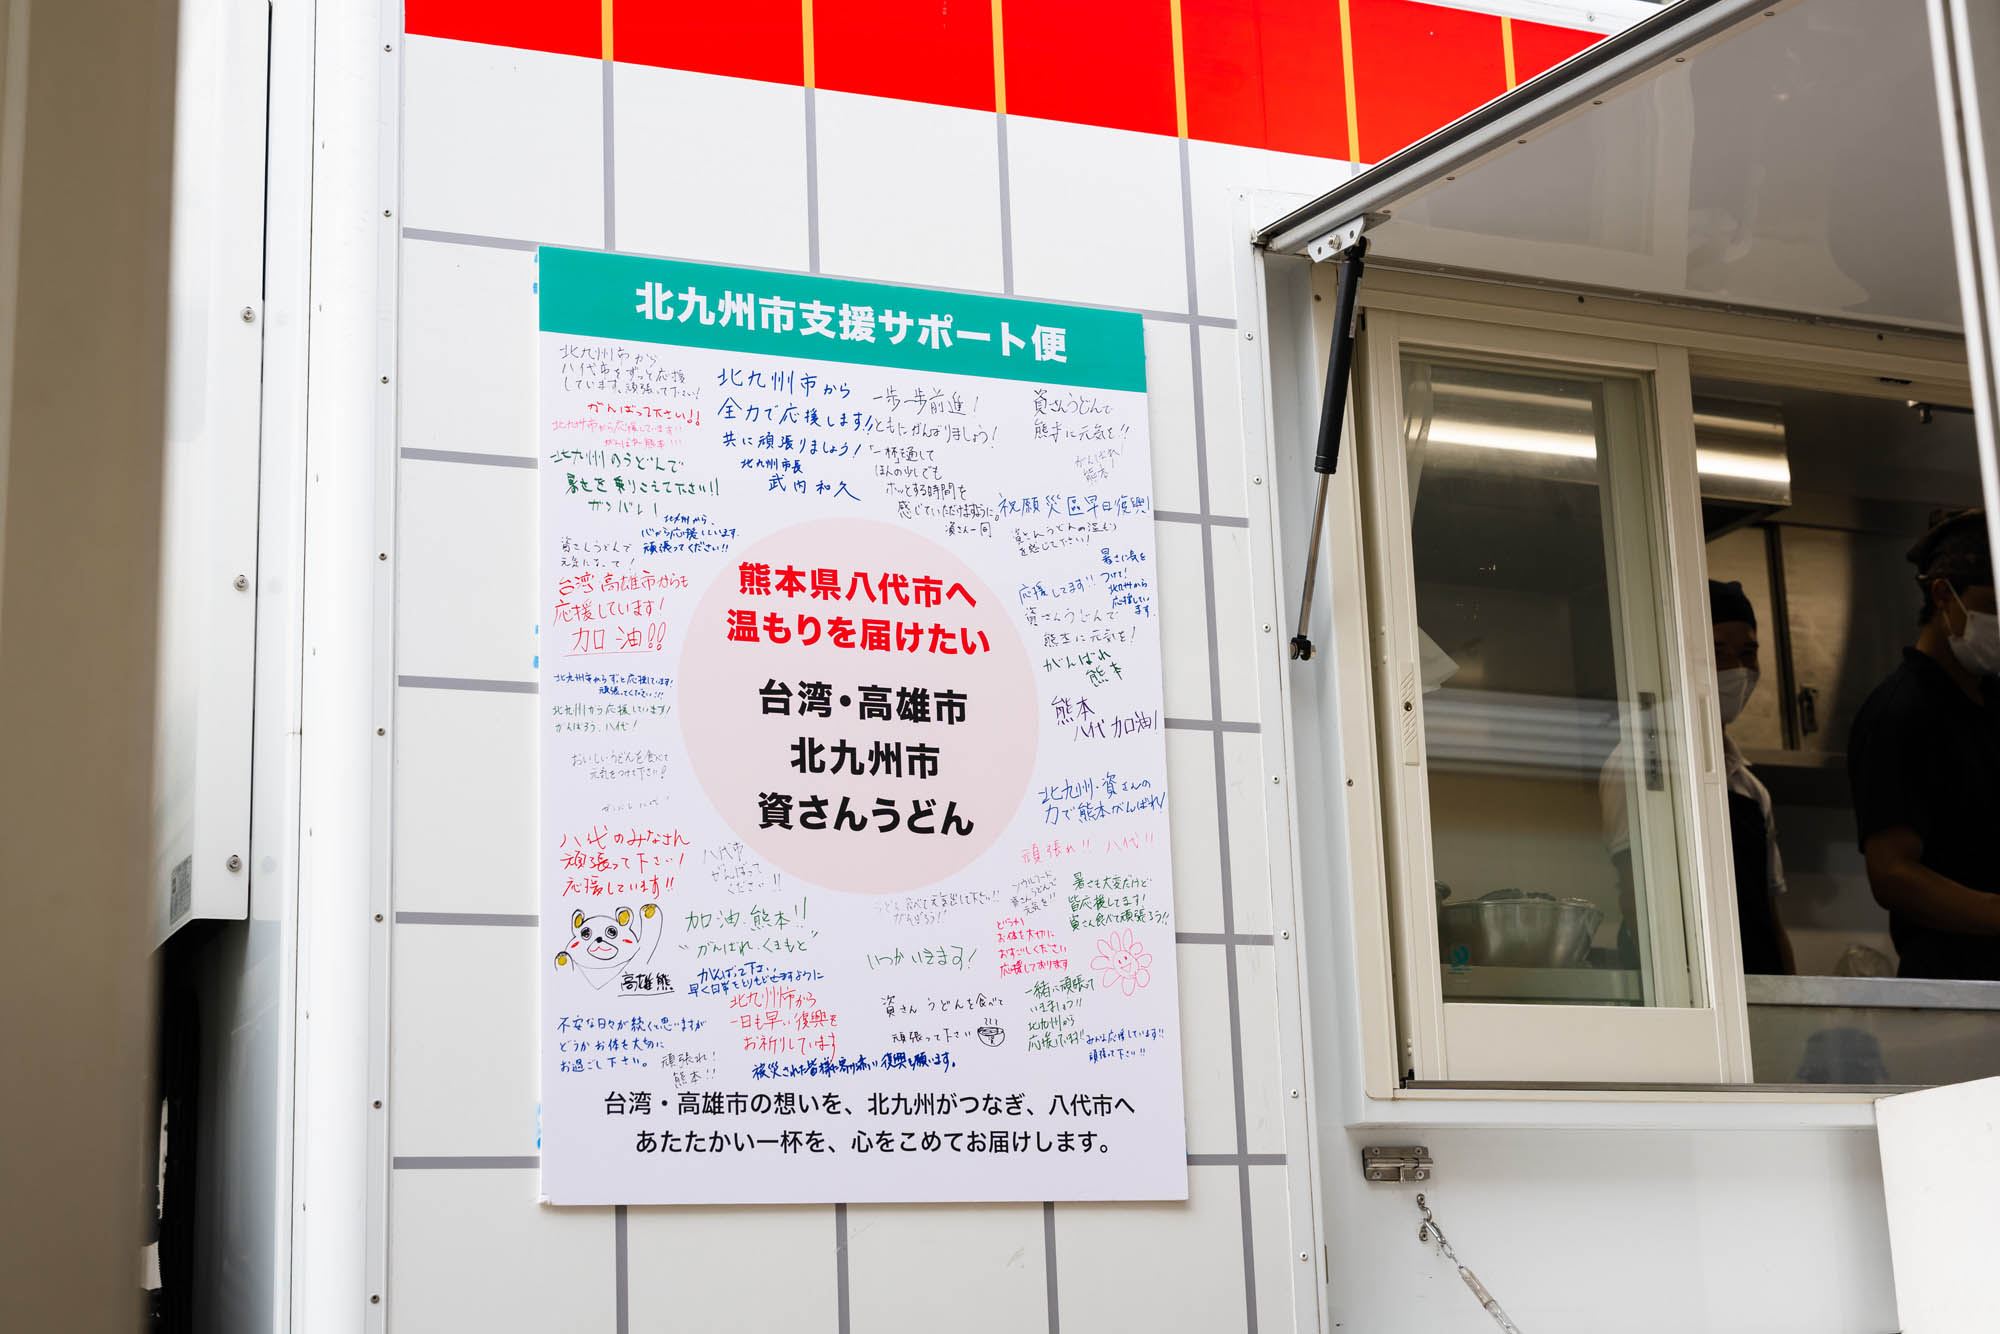 北九州市支援サポート便
北九州市から
八代市をずっと応援
しています、頑張って下さい!
がんばって下さい!!
北九州市から応援しています!!
がんばれ熊本!!!
北九州のうどんで
暑さを乗りこえて下さい!!
ガンバレ!
北九州から、
心から応援しています。
頑張ってください!!
資さんうどんで
元気になって!
台湾・高雄市からも
応援しています!
加油!!
北九州市からずっと応援しています!
頑張ってください!!
北九州から応援しています!
がんばろう、八代!
おいしいうどんを食べて
元気をつけて下さい!
八代のみなさん
頑張って下さい!
応援しています!!
八代市
がんばって
ください!!
北九州市から
全力で応援します!
共に頑張りましょう!
北九州市長
武内和久
一歩一歩前進!
ともにがんばりましょう!
「一杯を通して
ほんの少しでも
ホッとする時間を
感じていただけますように。
資さん一同
資さんうどんで
熊本に元気を!!
がんばれ!
熊本!
祝願災區早日復興!
資さんうどんの温もり
を感じて下さい!
暑さに気を
つけて!
北九州から
応援してい
ます。
応援してます!!
資さんうどんで
熊本に元気を!
がんばれ
熊本
熊本
八代 加油!
北九州・資さんの
力で熊本がんばれ!
頑張れ!! 八代!!
熊本県八代市へ
温もりを届けたい
台湾・高雄市
北九州市
資さんうどん
高雄熊
加油 熊本!!
"がんばれ・くまもと"
がんばって下さい
早く日常をとりもどせますように
北九州市から
一日も早い復興を
お祈りしています
うどん食べて元気出して下さい!!
がんばろう!
いつかいきます!
ソウルフード
資さんうどんで
元気を!!
暑さも大変だけど
皆応援してます!
資さん食べて頑張ろう!!
どうか
お体を大切に
おすごしください
応援しております
一緒に頑張って
いきましょう!!
北九州から
応援しています!
みんな応援しています!!
頑張って下さい!!
資さんうどんを食べて
頑張って下さい
不安な日々が続くと思いますが
どうかお体を大切に
お過ごし下さい。
頑張れ!
熊本!!
台湾・高雄市の想いを、北九州がつなぎ、八代市へ
あたたかい一杯を、心をこめてお届けします。